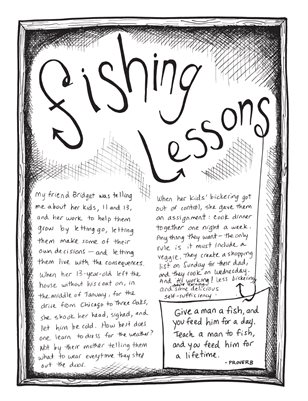 fishing
Lessons
My friend Bridget was telling
me about her kids, 11 and 13,
and her work to help them
grow by letting go, letting
them make some of their
own decisions — and letting
them live with the consequences.
When her 13-year-old left the
house without his coat on, in
the middle of January, for the
drive from Chicago to Three Oaks,
she shook her head, sighed, and
let him be cold. How best does
one learn to dress for the weather?
Not by their mother telling them
what to wear everytime they step
out the door.
When her kids' bickering got
out of control, she gave them
an assignment: cook dinner
together one night a week.
Any thing they want — the only
rule is it must include a
veggie. They create a shopping
list on Sunday for their dad,
and they cook on Wednesday.
and it's working! Less bickering
and some delicious
self-sufficiency
Give a man a fish, and
you feed him for a day.
Teach a man to fish,
and you feed him for
a lifetime.
- PROVERB